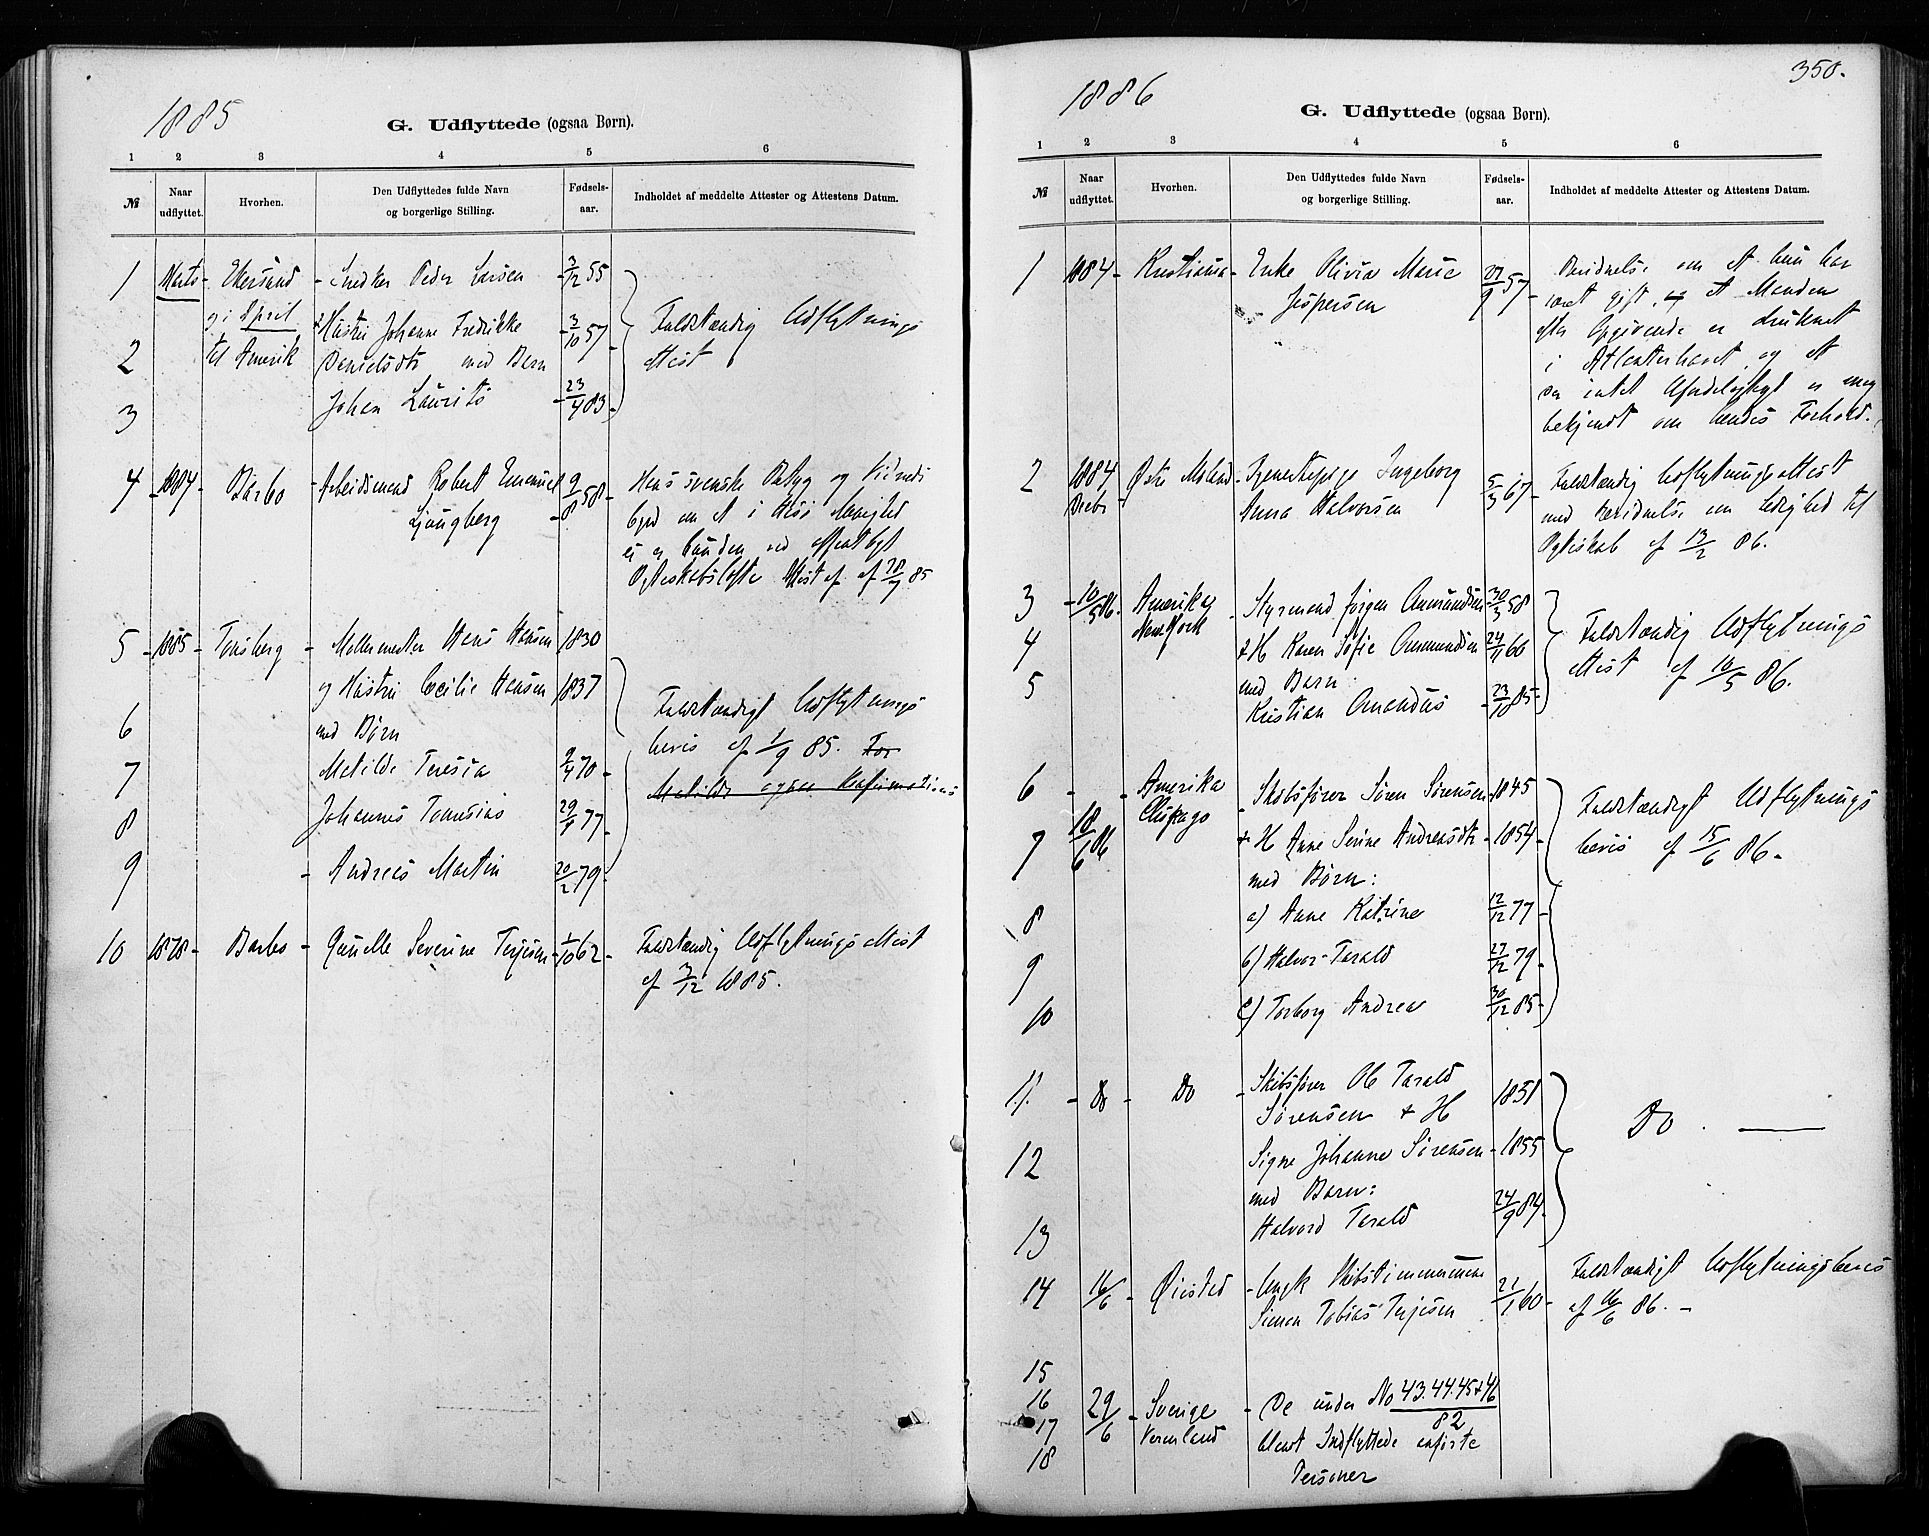 1885
G. Udflyttede (ogsaa Børn).
1 2 3 4 5 6
№ Naar udflyttet. Hvorhen. Den Udflyttedes fulde Navn og borgerlige Stilling. Fødsels-aar. Indholdet af meddelte Attester og Attestens Datum.
1 Marts Ekersund - Snedker Peder Larsen - 3/12 55
g i April & Hustru Johanne Fredrikke - 3/10 57 Fuldstændig Udflytnings
2 til Amerik Danielsdtr med Barn Attest
3 Johan Laurits - 23/4 83
4 - 1884 - Barbo - Arbeidsmand Robert Emanuel 9/8 58 - Hans svenske
Ljungberg
Attest af 28/7 85
5 - 1885 - Tønsberg - Møllermester Hans Hansen 1830
og Hustru Cecilie Hansen 1837
6 med Børn
Fuldstændigt Udflytnings
bevis af 1/9 85. For
7 Matilde Teresia 9/4 70 - Matilde ogsaa Konfirmations
8 Johannes Tomesius 29/1 77
9 - Andreas Martin 20/2 79
10 1878 - Barbo - Gunelle Severine Terjesen - 1/10 62 - Fuldstændig Udflytnings Attest
af 3/12 1885.
350.
1886
G. Udflyttede (ogsaa Børn).
1 2 3 4 5 6
№ Naar udflyttet. Hvorhen. Den Udflyttedes fulde Navn og borgerlige Stilling. Fødsels-aar. Indholdet af meddelte Attester og Attestens Datum.
1 1884 - Kristiania - Enke Olivia Marie 27/9 57 - Bevidnelse om at hun har
Jespersen været gift, og at Manden
efter Opgivende er druknet
i Atlanterhavet og at
der intet Ufordelagtigt er mig
bekjendt om hendes Forhold.
2 1884 Østre Moland - Tjenestepige Ingeborg 5/3 67 - Fuldstændig Udflytnings Attest
Decbr Anna Halvorsen med Bevidnelse om Ledighed til
Ægteskab af 13/2 86.
3 - 10/5 86. Amerika - Styrmand Jørgen Anmundsen 30/3 58
New York
4 & H Karen Sofie Anmundsen 24/11 60 Fuldstændig Udflytnings
5 med Barn: Attest af 10/5 86.
Kristian Amandus - 23/10 85 -
6 - - Amerika - Skibsfører Søren Sørensen - 1845
18/6 86 Chikago Fuldstændigt Udflytnings
7 & H Anne Serine Andreasdtr - 1854 - bevis af 15/6 86.
med Børn:
8 a) Anne Katrine 12/12 77 -
9 b) Halvor Tarald 27/12 79
10 c) Torborg Andrea 30/12 85 -
11. - Do - Do - Skibsfører Ole Tarald 1851
Sørensen & H Do
12 Signe Johanne Sørensen - 1855
med Barn:
13 Halvord Tarald 24/9 84.
14 16/6 - Øiestad - Ungk Skibstimmermand 21/1 60 - Fuldstændigt Udflytningsbevis
Simon Tobias Terjesen af 16/6 86. -
15
16 29/6 - Sverige - De under No 43.44.45+46/82
17 Vermland blandt Indflyttede anførte
18 Personer